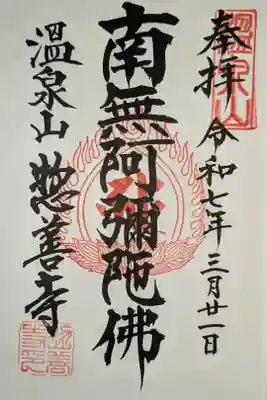 奉拝 令和七年三月廿一日
南無阿彌陀佛
温泉山 惣善寺